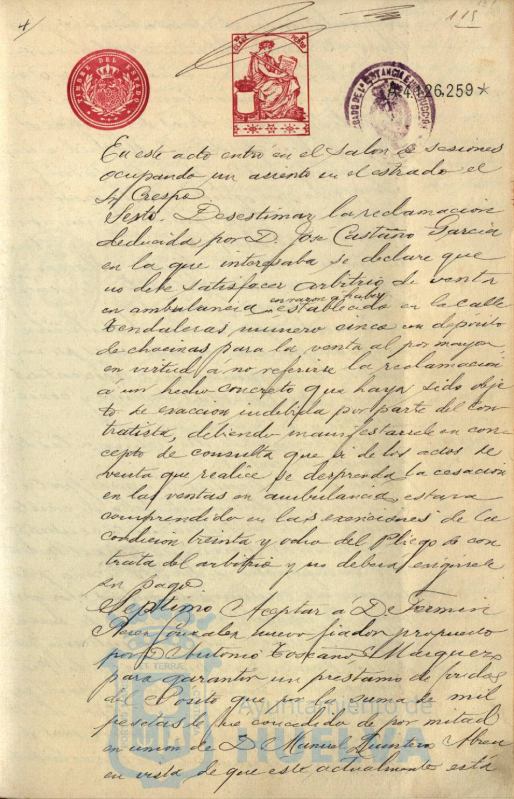 4/
115
TIMBRE DEL ESTADO
A4.026.259*
En este acto entró en el Salon de sesiones
ocupando un asiento en el estrado el
Sr Crespo
Sexto. Desestimar la reclamacion
deducida por D. José Castaño Garcia
en la que interesaba se declare que
no debe satisfacer arbitrio de venta
en ambulancia en razon á haber establecido en la calle
Tendaleras, numero cinco un deposito
de chacinas para la venta al por mayor
en virtud a no referirse la reclamacion
á un hecho concreto que haya sido obje
to de exaccion indebida por parte del con
tratista, debiendo manifestarsele en con
cepto de consulta que si de los actos de
venta que realice se desprenda la cesacion
en las ventas en ambulancia, estara
comprendido en las exenciones de la
condicion treinta y ocho del Pliego de con
trata del arbitrio y no debera exigirsele
su pago
Septimo Aceptar á D. Fermin
Gonzalez nuevo fiador propuesto
por D Antonio Toscano Marquez
para garantir un prestamo de fondos
del Posito que por la suma de mil
pesetas le fue concedido de por mitad
en union de D Manuel Quintero Abreu
en vista de que este actualmente está
Ayuntamiento de
HUELVA